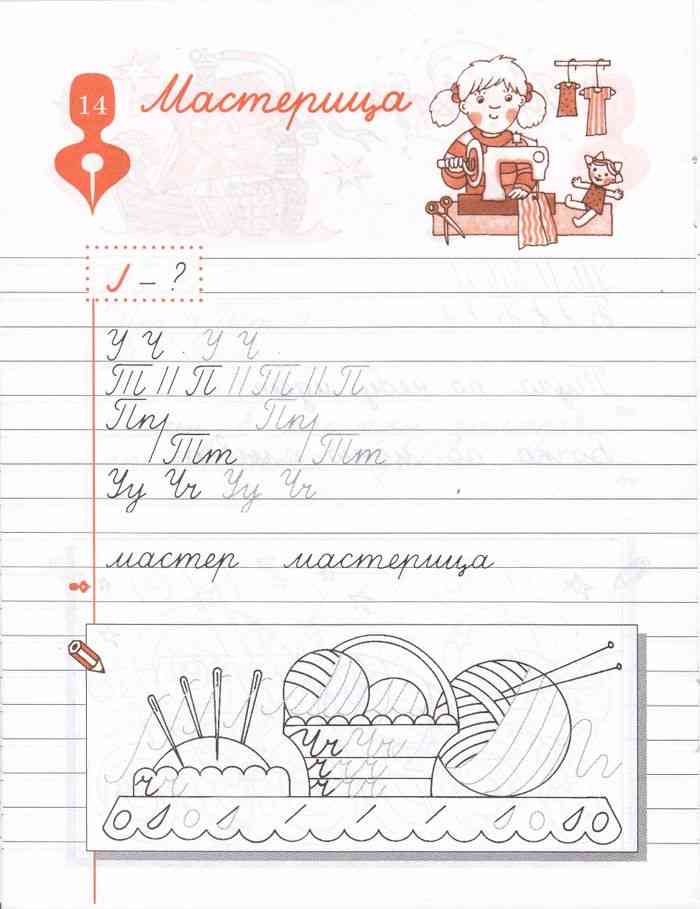 14 Мастерица
– ?
У Ч . У Ч
Т // П // Т // П
Пп / Пп /
/ Тт / Тт
Уу Чч Уу Чч
мастер мастерица
Чч Чч
ч ч ч
ч ч ч ч ч